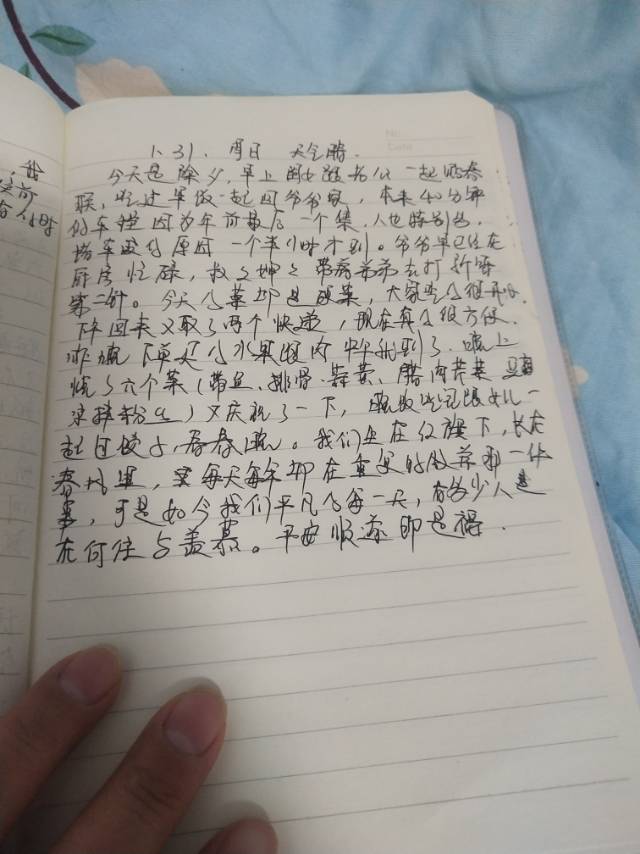 No:
Date:
1.31. 周日 天气晴.
今天是除夕,早上闺女跟爸爸一起贴春
联,吃过早饭一起回爷爷家,本来40分钟
的车程因为年前最后一个集,人也特别多,
堵车 原因一个半小时才到。爷爷早已经在
厨房忙碌,叔叔婶婶带病弟弟去打
第二针。今天的菜都是 菜,大家吃的很开心.
下午回来又取了两个快递,现在真的很方便.
昨晚下单买的水果 到了.晚上
烧了六个菜(带鱼、排骨、蒜黄、腊肉芹菜
)又庆祝了一下,晚饭吃完跟女儿一
起包饺子,看春晚。我们生在红旗下,长在
春风里, 每天每年都在重复的做着那一件
事,可是如今我们平凡的每一天,有多少人是
在向往与羡慕。平安顺遂即是福.